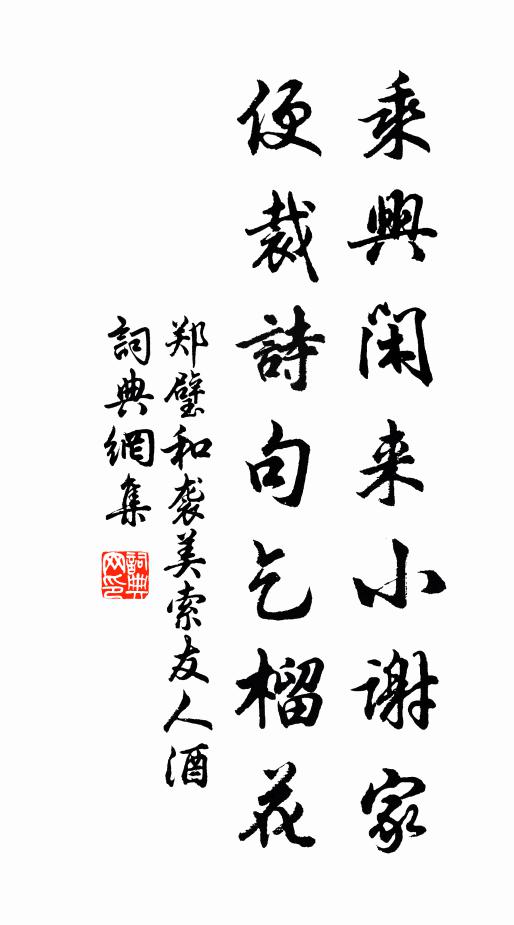 乘興閑来小谢家
便裁詩句乞榴花
郑璧和袭美索友人酒
詞典網集
詞典
网印